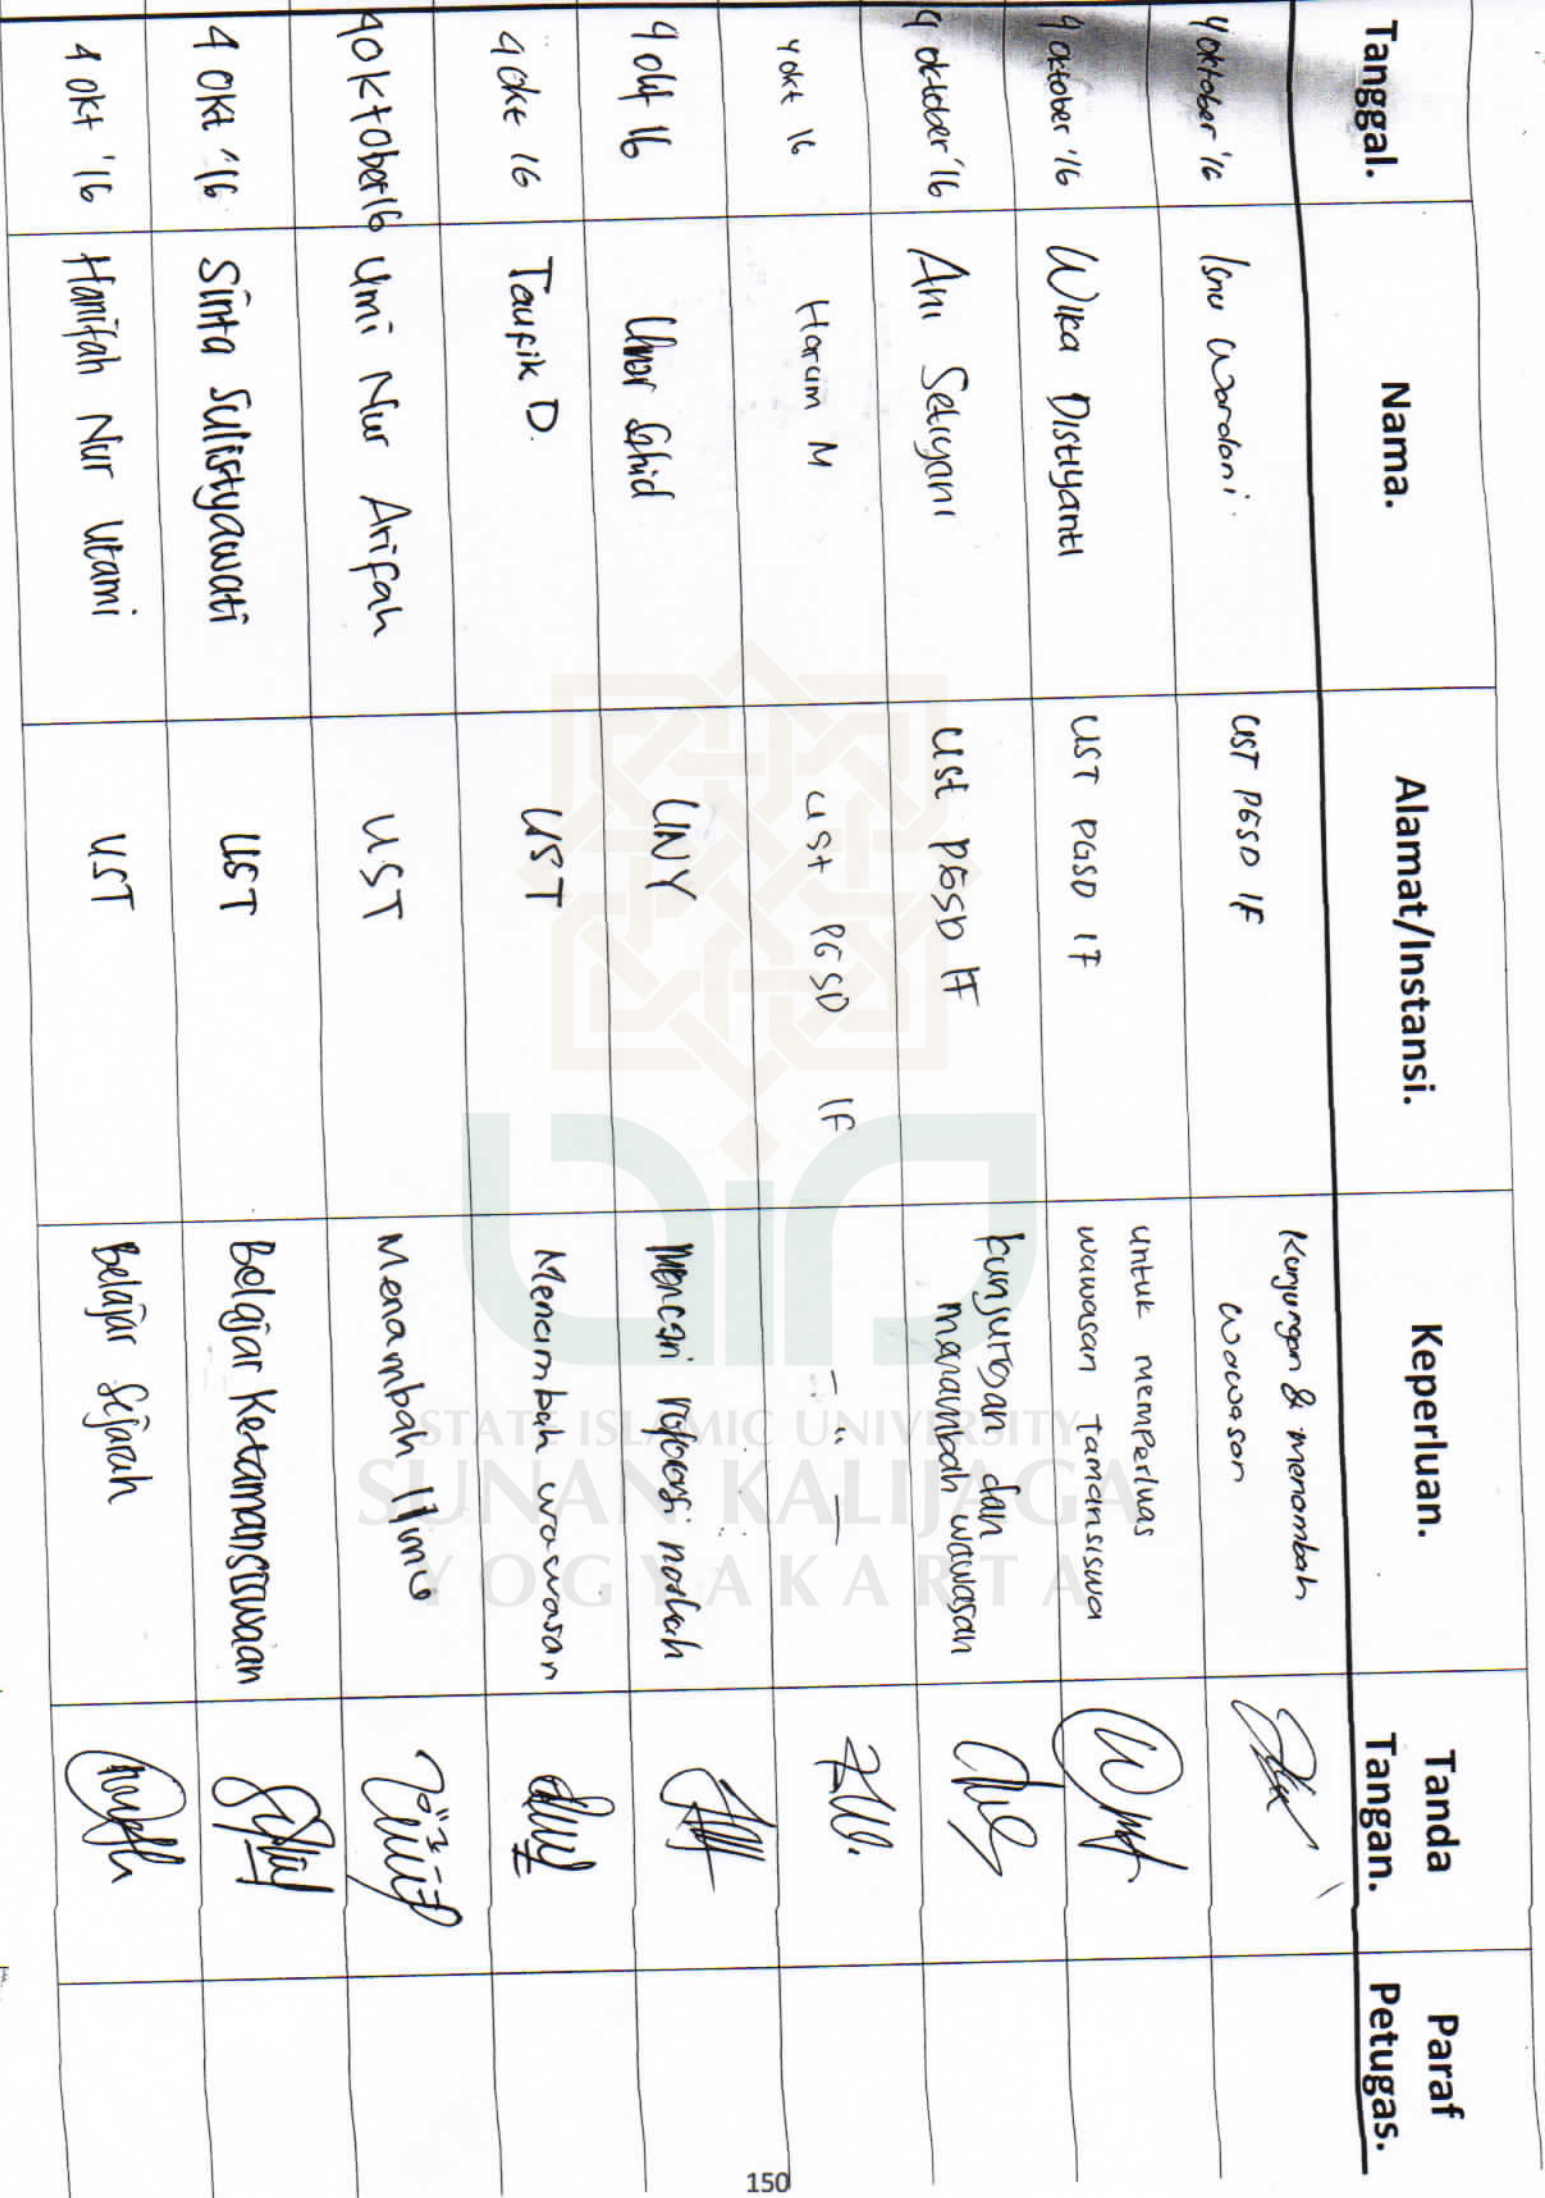 Tanggal. Nama. Alamat/Instansi. Keperluan. Tanda Tangan. Paraf Petugas.
4 oktober '16 Isnu Wardani. UST PGSD 1F Kunjungan & menambah
wawasan
4 oktober '16 Wika Distiyanti UST PGSD 1F untuk memperluas
wawasan Tamansiswa
4 oktober '16 Ani Setiyani Ust PGSD 1F kunjungan dan
menambah wawasan
4 okt 16 Harum M Ust PGSD 1F – " –
4 okt 16 Umar Sahid UNY Mencari naskah
4 Okt 16 Taufik D. UST Menambah wawasan
4 Oktober 16 Umi Nur Arifah UST Menambah Ilmu
4 Okt '16 Sinta Sulistyawati UST Belajar Ketamansiswaan
4 Okt '16 Hanifah Nur Utami UST Belajar Sejarah
STATE ISLAMIC UNIVERSITY
SUNAN KALIJAGA
YOGYAKARTA
150